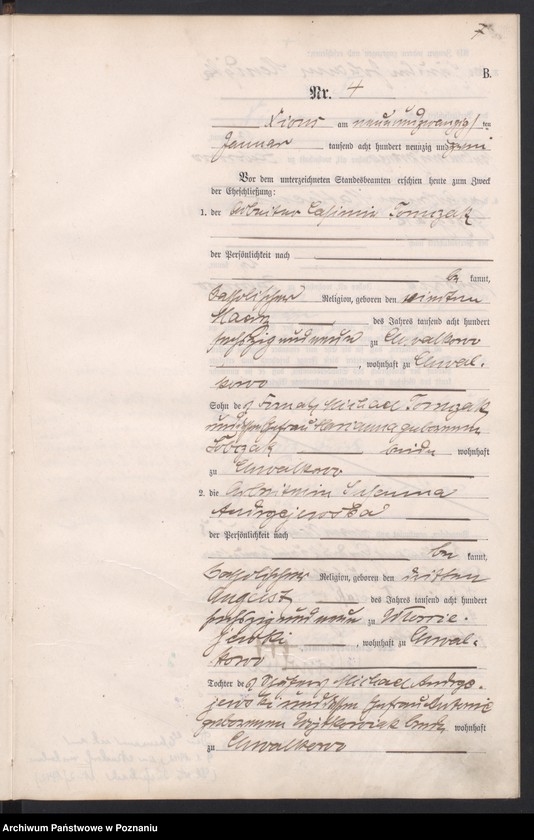 7
B.
Nr. 4
Xions am neunundzwanzigsten
Januar tausend acht hundert neunzig und zwei
Vor dem unterzeichneten Standesbeamten erschien heute zum Zweck
der Eheschließung:
1. der Arbeiter Casimir Tomczak
der Persönlichkeit nach
be kannt,
katholischer Religion, geboren den vierten
Maerz des Jahres tausend acht hundert
sechszig und neun zu Chwalkowo
, wohnhaft zu Chwal-
kowo
Sohn des Michael Tomczak
und dessen Ehefrau Marianna geborenen
beide wohnhaft
zu Chwalkowo
2. die Arbeiterin Susanna
Andrzejewska
der Persönlichkeit nach
be kannt,
katholischer Religion, geboren den dritten
August des Jahres tausend acht hundert
sechszig und neun zu
, wohnhaft zu Chwal-
kowo
Tochter des Michael Andrze-
jewski und dessen Ehefrau Antonie
geborenen wohnhaft
zu Chwalkowo
Archiwum Państwowe w Poznaniu